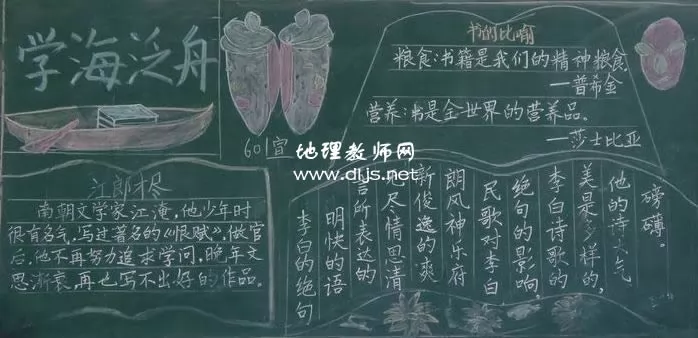 学海泛舟
江郎才尽
南朝文学家江淹,他少年时
很有名气,写过著名的《恨赋》,做官
后,他不再努力追求学问,晚年文
思渐衰,再也写不出好的作品。
601宣
书的比喻
粮食:书籍是我们的精神粮食。
—普希金
营养:书是全世界的营养品。
—莎士比亚
李白的绝句
明快的语
言所表达的
尽情思清
新俊逸的爽
朗风神乐府
民歌对李白
绝句的影响,
李白诗歌的
美是多样的,
他的诗大气
磅礴。
地理教师网
www.dljs.net